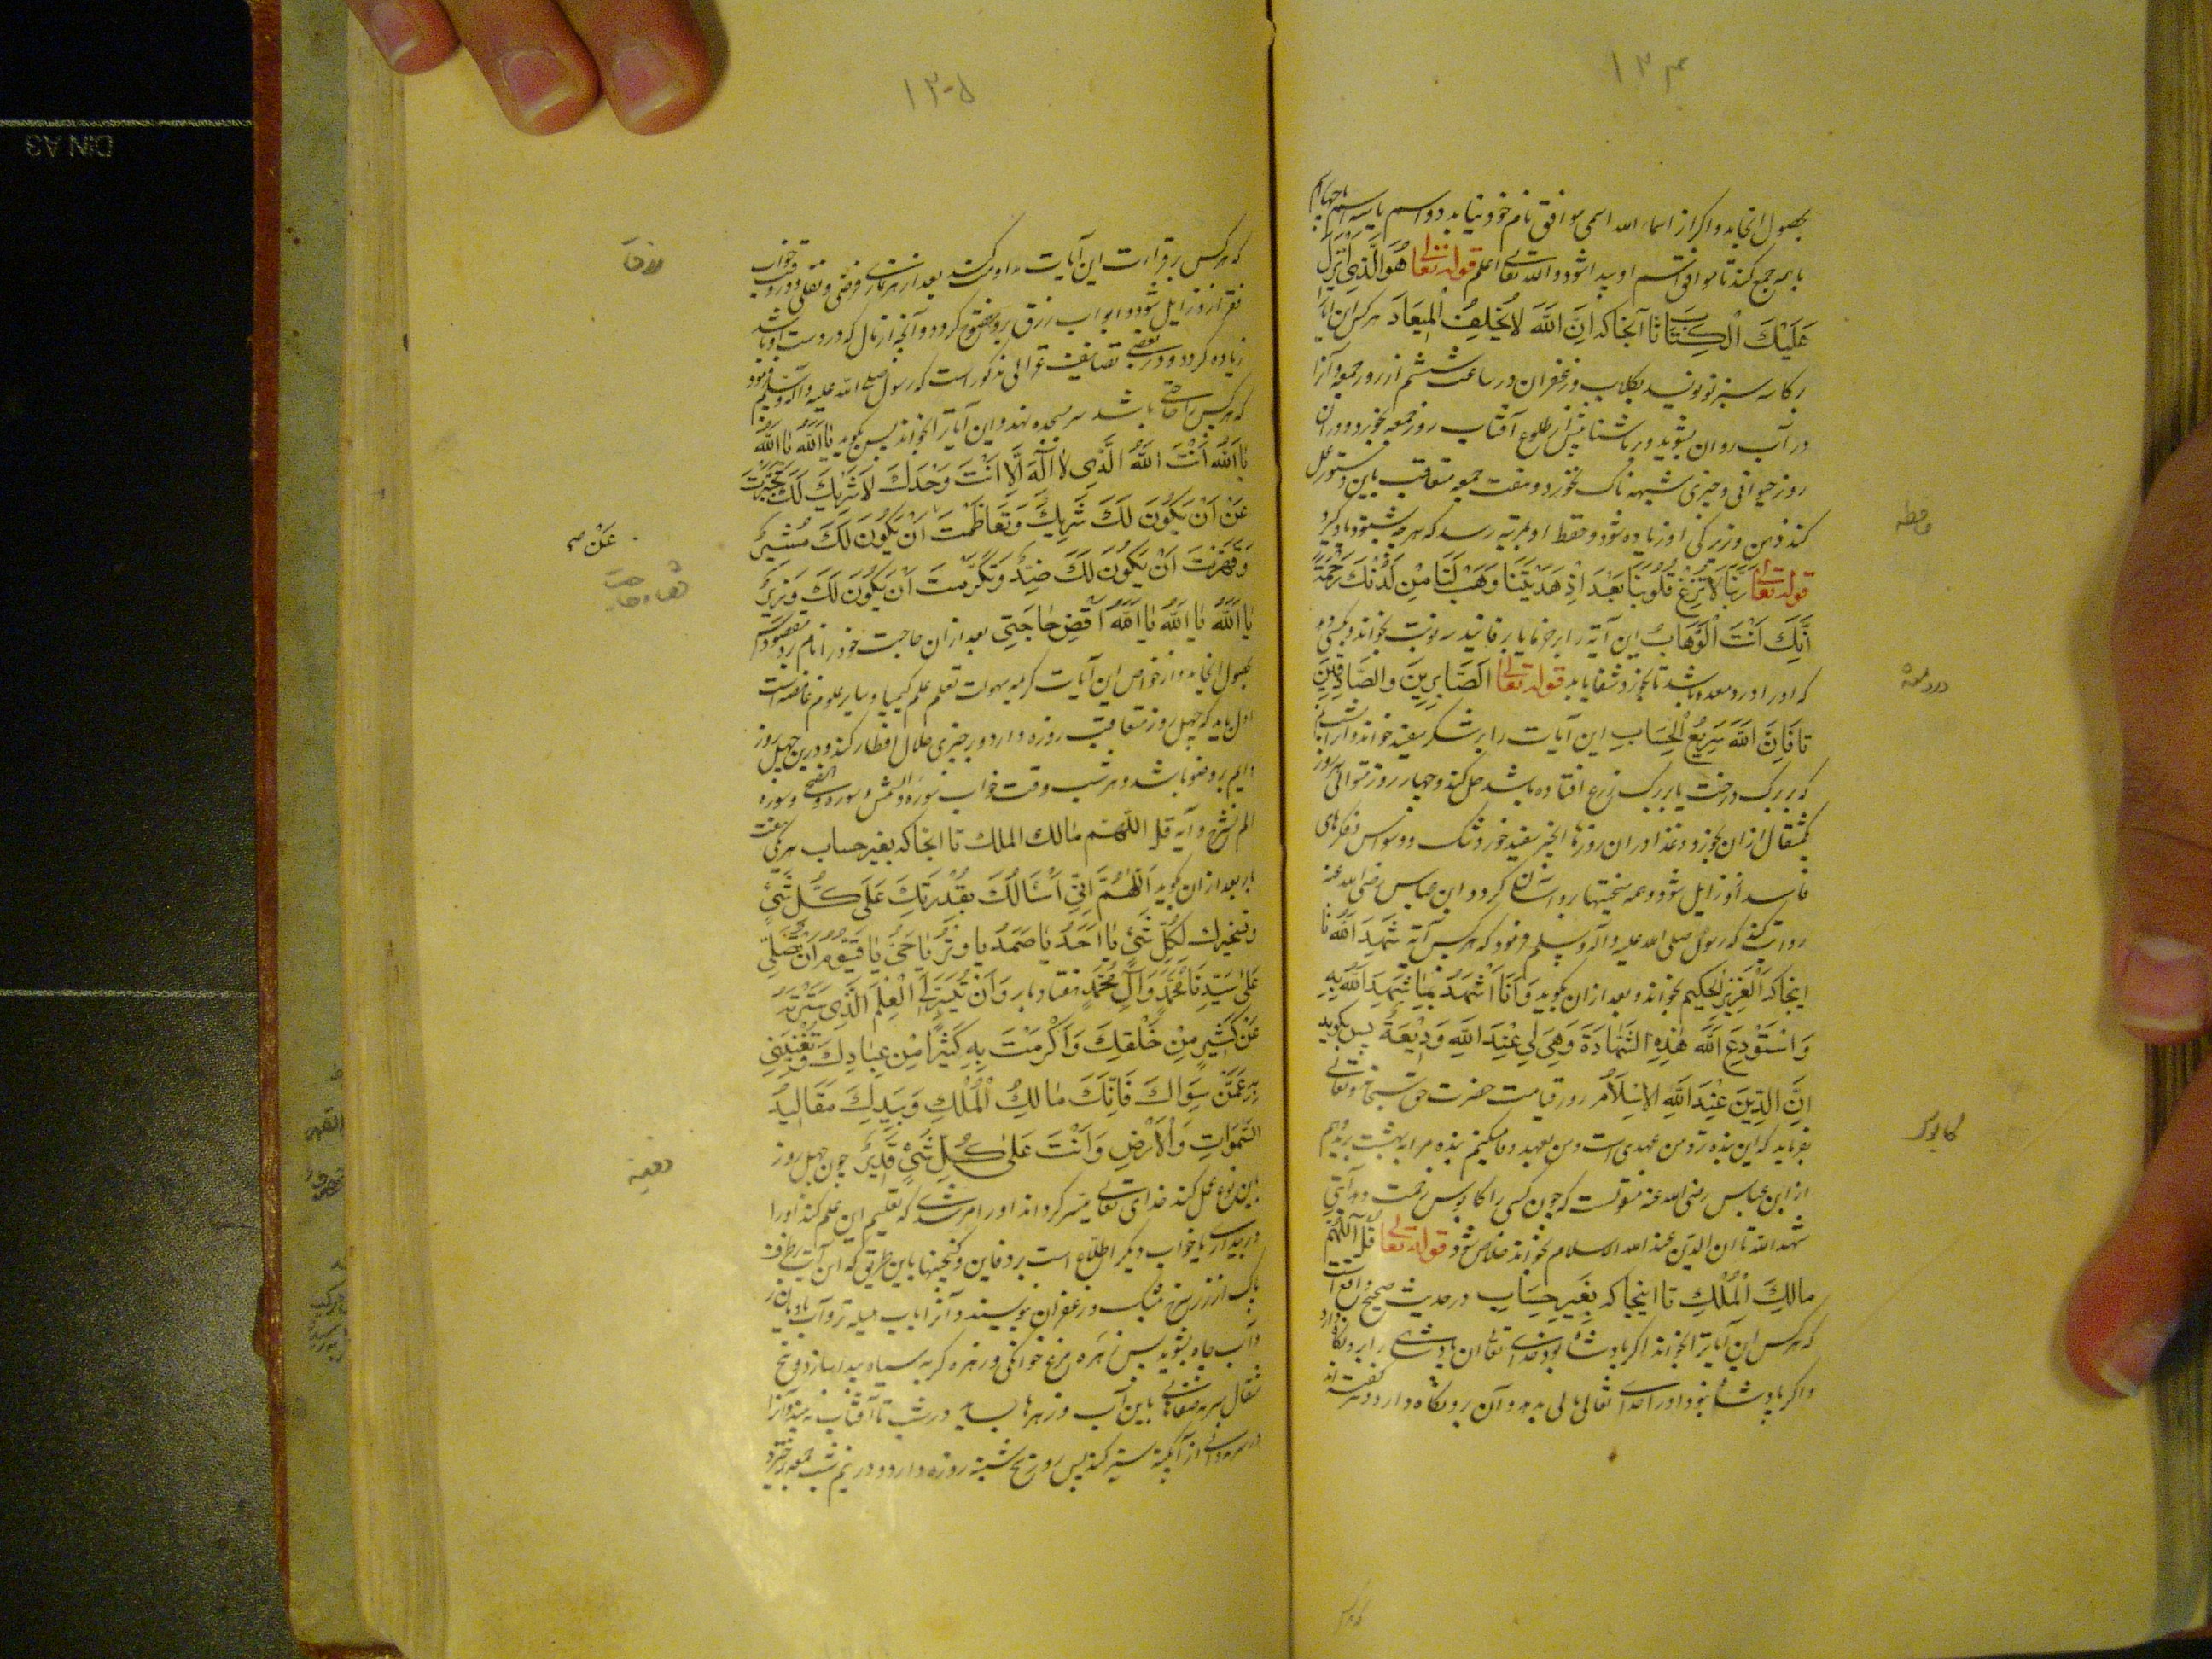 ۱۳۴
بحصول انجامد و اگر از اسماء الله اسمی موافق نام خود نیابد دو اسم یا سه اسم یا چهار اسم
با هم جمع کند تا موافق قسم او پیدا شود والله تعالی اعلم قوله تعالی هُوَ الَّذِی اَنْزَلَ
عَلَیْكَ الْكِتَابَ تا آنجا که اِنَّ اللّٰهَ لَا یُخْلِفُ الْمِیعَادَ هر کس این آیات را
بر کاسه سبز نو نویسد بگلاب و زعفران در ساعت ششم از روز جمعه و آنرا
در آب روان بشوید و برناشتا پیش از طلوع آفتاب روز جمعه بخورد و در آن
روز حیوانی و چیزی شبهه ناک نخورد و هفت جمعه متعاقب باین دستور عمل
کند ذهن و زیرکی او زیاده شود و حفظ او بمرتبه رسد که هر چه بشنود یاد گیرد
حافظه
قوله تعالی رَبَّنَا لَا تُزِغْ قُلُوبَنَا بَعْدَ اِذْ هَدَیْتَنَا وَهَبْ لَنَا مِنْ لَدُنْكَ رَحْمَةً
اِنَّكَ اَنْتَ الْوَهَّابُ این آیه را بر خرما یا بر فانید سه نوبت بخواند و بکسی دهد
که او را درد معده باشد تا بخورد شفا یابد قوله تعالی الصَّابِرِینَ وَالصَّادِقِینَ
درد معده
تا فَاِنَّ اللّٰهَ سَرِیعُ الْحِسَابِ این آیات را بر شکر سفید خواند و از آب
که بر برگ درخت یا بر برگ زرع افتاده باشد حل کند و چهار روز متوالی هر روز
یکمثقال از آن بخورد و غذا در آن روزها انجیر سفید خورد شک و وسواس و فکرهای
فاسد از او زایل شود و همه سختیها بر او آسان گردد و ابن عباس رضی الله عنه
روایت کند که رسول صلی الله علیه و آله و سلم فرمود که هر کس آیه شَهِدَ اللّٰهُ تا
اینجا که اَلْعَزِیزُ الْحَكِیم بخواند و بعد از آن بگوید وَ اَنَا اَشْهَدُ بِمَا شَهِدَ اللّٰهُ بِهِ
وَ اَسْتَوْدِعُ اللّٰهَ هٰذِهِ الشَّهَادَةَ وَهِیَ لِی عِنْدَ اللّٰهِ وَدِیعَةٌ پس بگوید
اِنَّ الدِّینَ عِنْدَ اللّٰهِ الْاِسْلَامُ روز قیامت حضرت حق سبحانه و تعالی
بفرماید که این بنده را بر من عهدی است و من بعهد وفا میکنم بنده مرا به بهشت برید و هم
از ابن عباس رضی الله عنه منقولست که چون کسی را کابوس زحمت دهد آیتی
کابوس
شهد الله تا ان الدین عند الله الاسلام بخواند خلاص شود قوله تعالی قُلِ اللّٰهُمَّ
مَالِكَ الْمُلْكِ تا اینجا که بِغَیْرِ حِسَابٍ در حدیث صحیح واقع است
که هر کس این آیات را بخواند اگر پادشاه بود خدای تعالی آن پادشاهی را بر او نگاه دارد
و اگر پادشاه نبود او را خدای تعالی مالی بدهد و آن بر او نگاه دارد و گفته اند
که هر کس
۱۳۵
که هر کس بر قراءت این آیات مداومت کند بعد از هر نماز فرض و نفل و در وقت خواب
فقر از او زایل شود و ابواب رزق بر او مفتوح گردد و آنچه از مال که در دست او باشد
زیاده گردد و در بعضی تصانیف غزالی مذکور است که رسول صلی الله علیه و آله و سلم فرمود
که هر کس را حاجتی باشد سر بسجده نهد و این آیات را بخواند پس بگوید یَا اَللّٰهُ یَا اَللّٰهُ
یَا اَللّٰهُ اَنْتَ اللّٰهُ الَّذِی لَا اِلٰهَ اِلَّا اَنْتَ وَحْدَكَ لَا شَرِیكَ لَكَ تَجَبَّرْتَ
عَنْ اَنْ یَكُونَ لَكَ شَرِیكٌ وَ تَعَاظَمْتَ اَنْ یَكُونَ لَكَ مُشِیرٌ
عَنْ صح
وَ قَهَرْتَ اَنْ یَكُونَ لَكَ ضِدٌّ وَ تَكَرَّمْتَ اَنْ یَكُونَ لَكَ وَزِیرٌ
قضاء حاجت
یَا اَللّٰهُ یَا اَللّٰهُ یَا اَللّٰهُ اقْضِ حَاجَتِی بعد از آن حاجت خود را نام برد مقصودش
بحصول انجامد و از خواص این آیات کریمه سهولت تعلم علم کیمیا و سایر علوم غامضه است
اول باید که چهل روز متعاقب روزه دارد و بر چیزی حلال افطار کند و درین چهل روز
دایم بر وضو باشد و هر شب وقت خواب سوره والشمس و سوره والضحی و سوره
الم نشرح و آیه قل اللّهم مالك الملك تا اینجا که بغیر حساب هر یکی هفت
بار بعد از آن بگوید اَللّٰهُمَّ اِنِّی اَسْاَلُكَ بِقُدْرَتِكَ عَلَى كُلِّ شَیْءٍ
وَ تسخیرك لِكُلِّ شَیْءٍ یَا اَحَدُ یَا صَمَدُ یَا وِتْرُ یَا حَیُّ یَا قَیُّومُ اَنْ تُصَلِّیَ
عَلَى سَیِّدِنَا مُحَمَّدٍ وَ آلِ مُحَمَّدٍ هفتاد بار وَ اَنْ تُیَسِّرَ لِی الْعِلْمَ الَّذِی سَتَرْتَهُ
عَنْ كَثِیرٍ مِنْ خَلْقِكَ وَ اَكْرَمْتَ بِهِ كَثِیرًا مِنْ عِبَادِكَ وَ تُغْنِیَنِی
بِهِ عَمَّنْ سِوَاكَ فَاِنَّكَ مَالِكُ الْمُلْكِ وَ بِیَدِكَ مَقَالِیدُ
السَّمٰوَاتِ وَ الْاَرْضِ وَ اَنْتَ عَلٰى كُلِّ شَیْءٍ قَدِیرٌ چون چهل روز
باین نوع عمل کند خدای تعالی میسر گرداند او را مرشدی که تعلیم این علم کند او را
در بیداری یا خواب دیگر اطلاع است بر دفاین و گنجینها باین طریق که این آیت بر ظرف
پاک از زر سرخ بمشک و زعفران نویسند و آنرا بآب هلیله زرد و آب بادیان تر
و آب چاه بشوید پس زهره مرغ خوانگی و زهره گربه سیاه پیدا سازد و پنج
مثقال سرمه صفاهانی باین آب و زهرها بساید در شب تا آفتاب نبیند و آنرا
در سرمه دانی از آبگینه سبز کند پس روز پنجشنبه روزه دارد و در نیم شب جمعه برخیزد
DIN A3